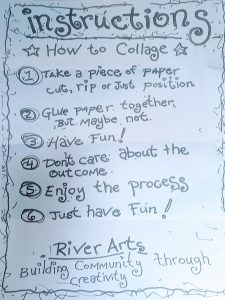 instructions
☆ How to Collage ☆
1 Take a piece of paper
cut, rip or Just position
2 Glue paper together
But maybe not.
3 Have Fun!
4 Don't care about the
outcome.
5 Enjoy the process
6 Just have Fun!
River Arts
Building Community through
Creativity